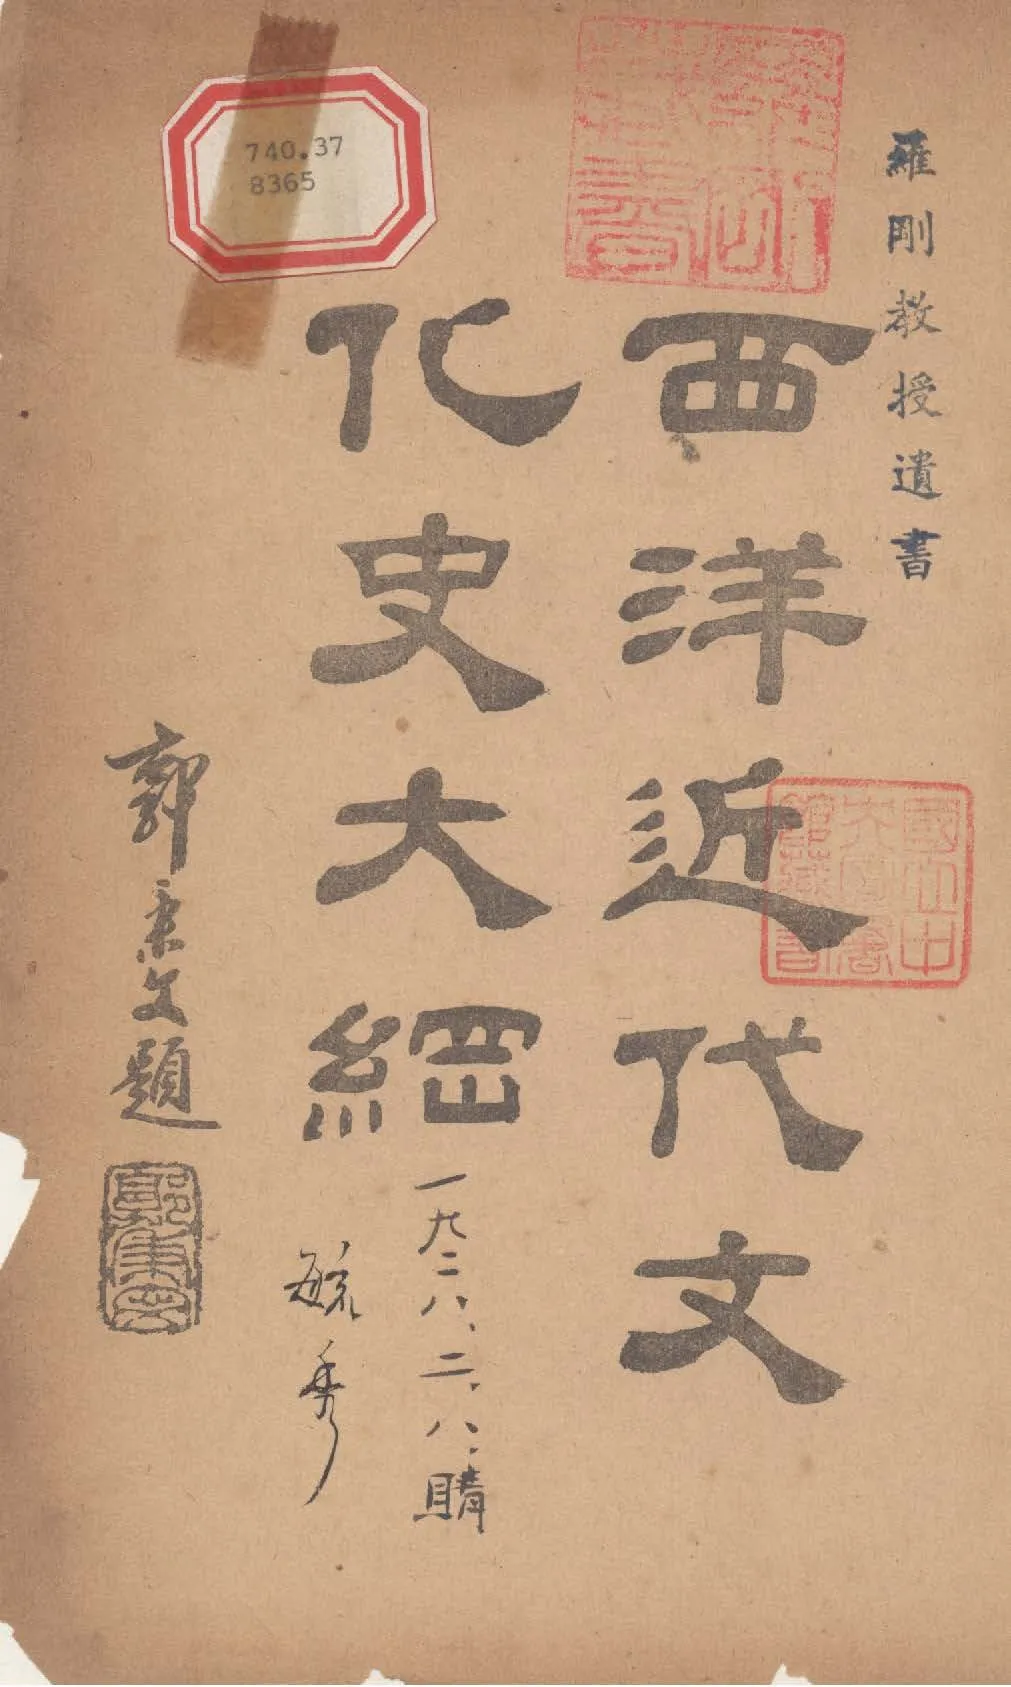 羅剛教授遺書
西洋近代文
化史大綱
國立中
央圖書
館藏書
740.37
8365
一九二八、二、八、購
毓秀
郭秉文題